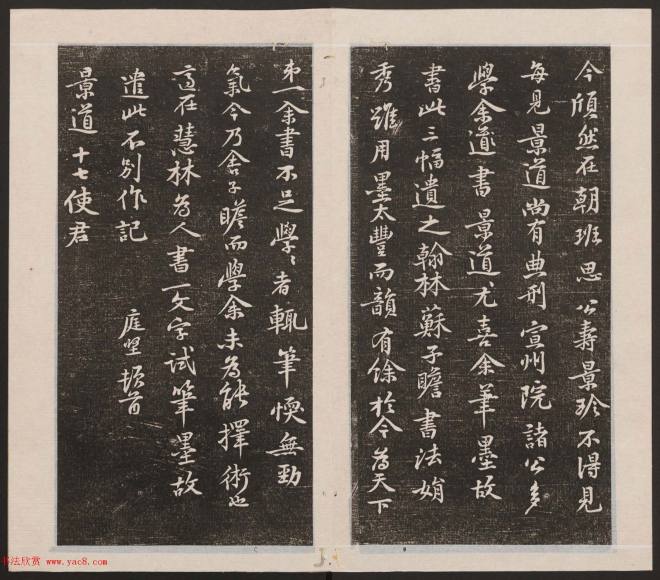 今頎然在朝班思公壽景珍不得見
每見景道尚有典刑宣州院諸公多
學余道書景道尤喜余筆墨故
書此三幅遺之翰林蘇子瞻書法娟
秀雖用墨太豐而韻有餘於今為天下
第一余書不足學學者輒筆愞無勁
氣今乃舍子瞻而學余未為能擇術也
適在慧林為人書一文字試筆墨故
遣此不別作記
庭堅頓首
景道十七使君
书法欣赏 www.yac8.com